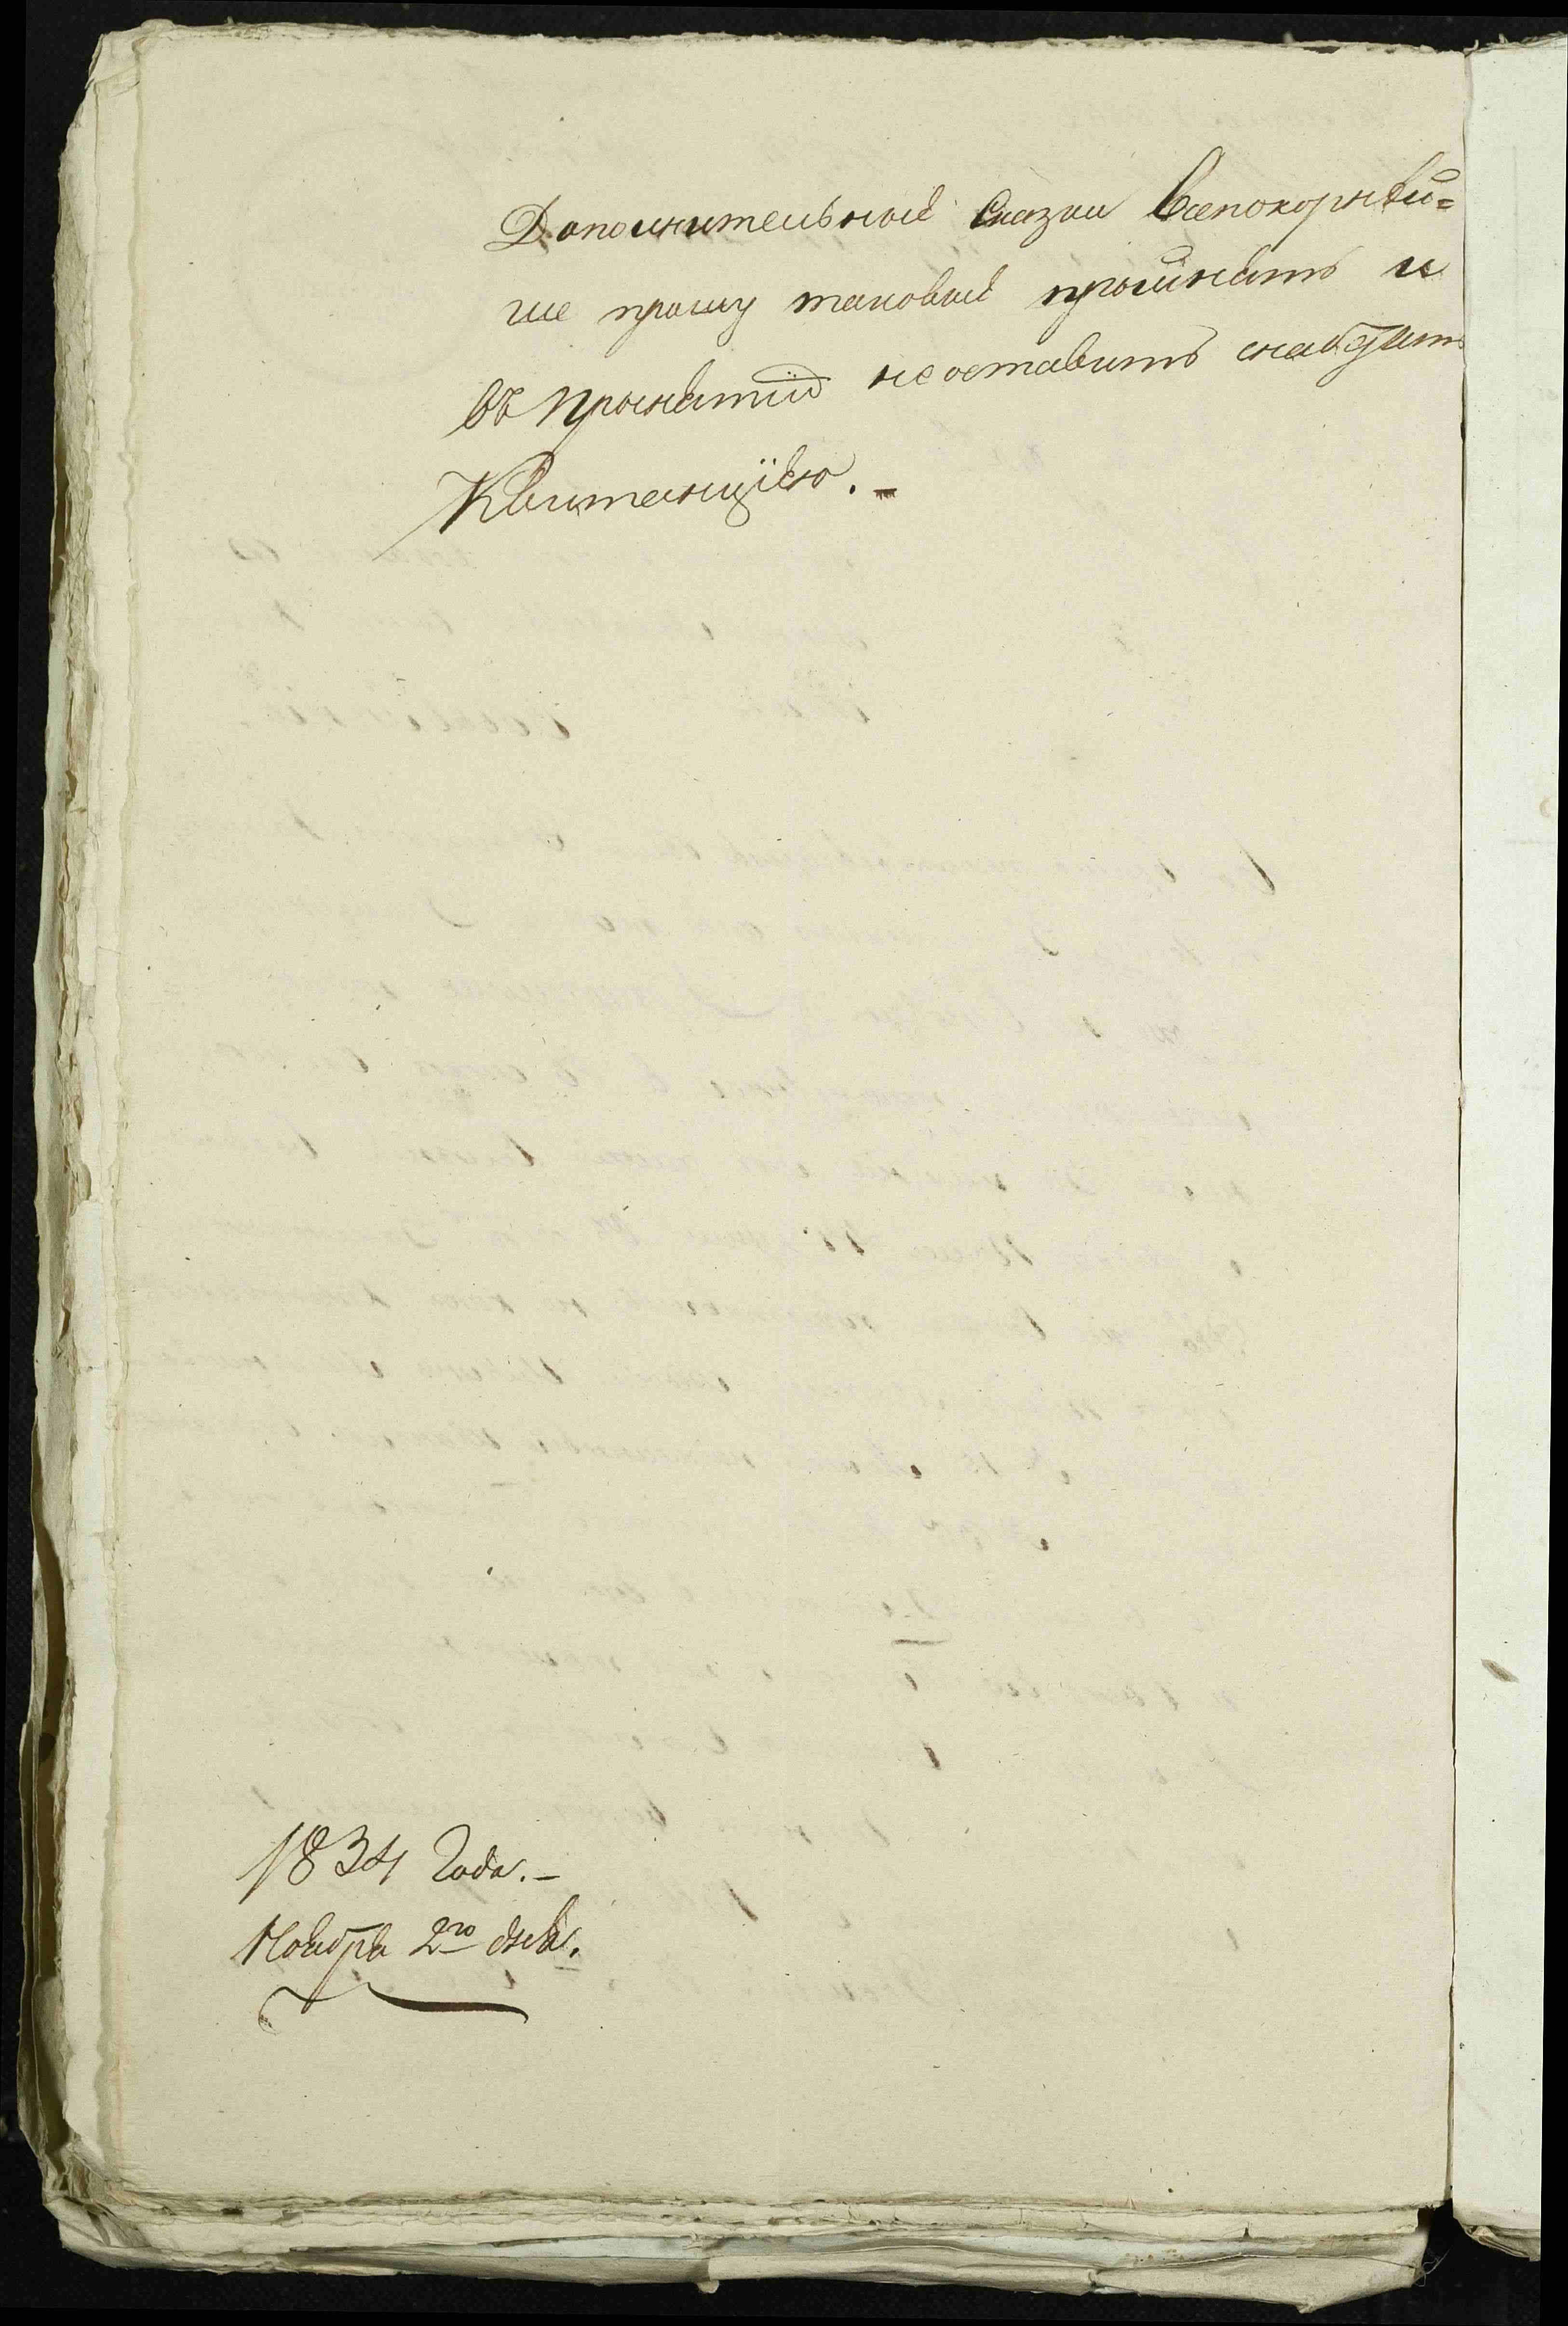 Дополнительныѣ Сказки Всепокорнѣй=
ше прошу таковыѣ принять и
въ принятии не оставить снабдить
Квитанцiѣю. –
1834 Года. –
Ноября 2го дня.